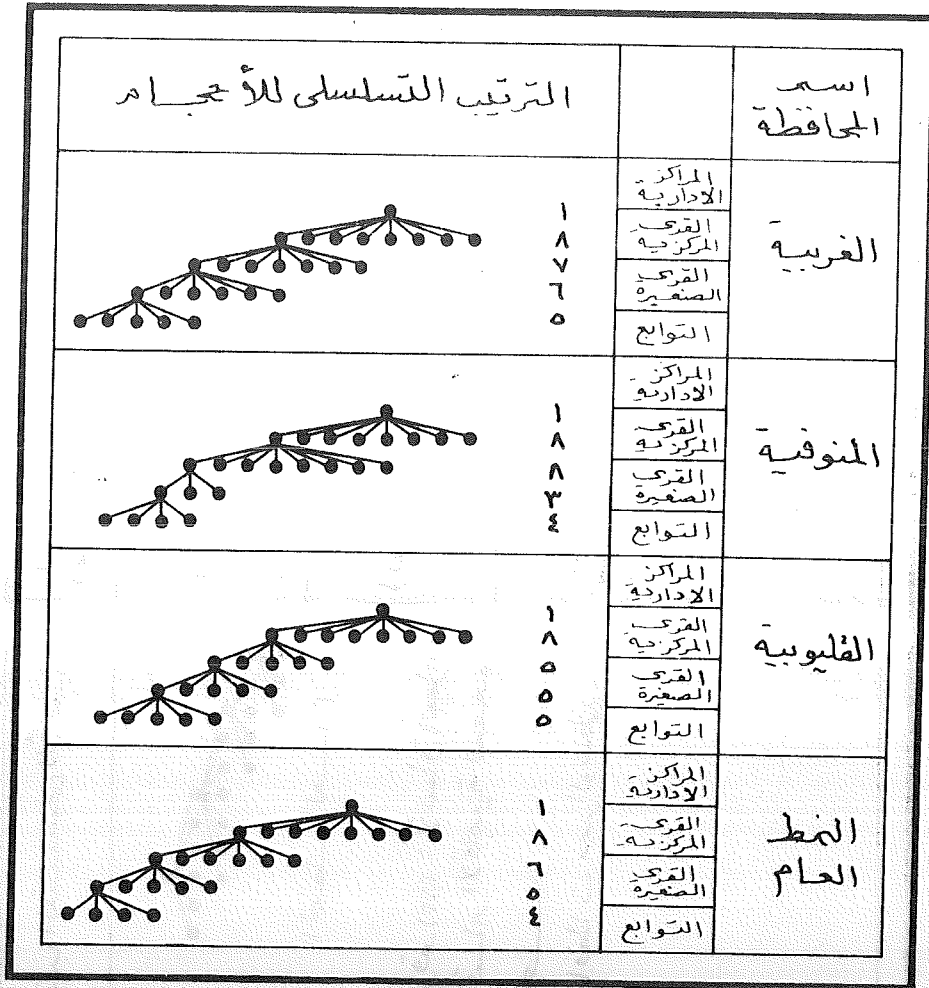 اسم
المحافظة
الترتيب التسلسلى للأحجام
الغربية
المراكز
الادارية
القرى
المركزية
القرى
الصغيرة
التوابع
١
٨
٧
٦
٥
المنوفية
المراكز
الادارية
القرى
المركزية
القرى
الصغيرة
التوابع
١
٨
٨
٣
٤
القليوبية
المراكز
الادارية
القرى
المركزية
القرى
الصغيرة
التوابع
١
٨
٥
٥
٥
النمط
العام
المراكز
الادارية
القرى
المركزية
القرى
الصغيرة
التوابع
١
٨
٦
٥
٤